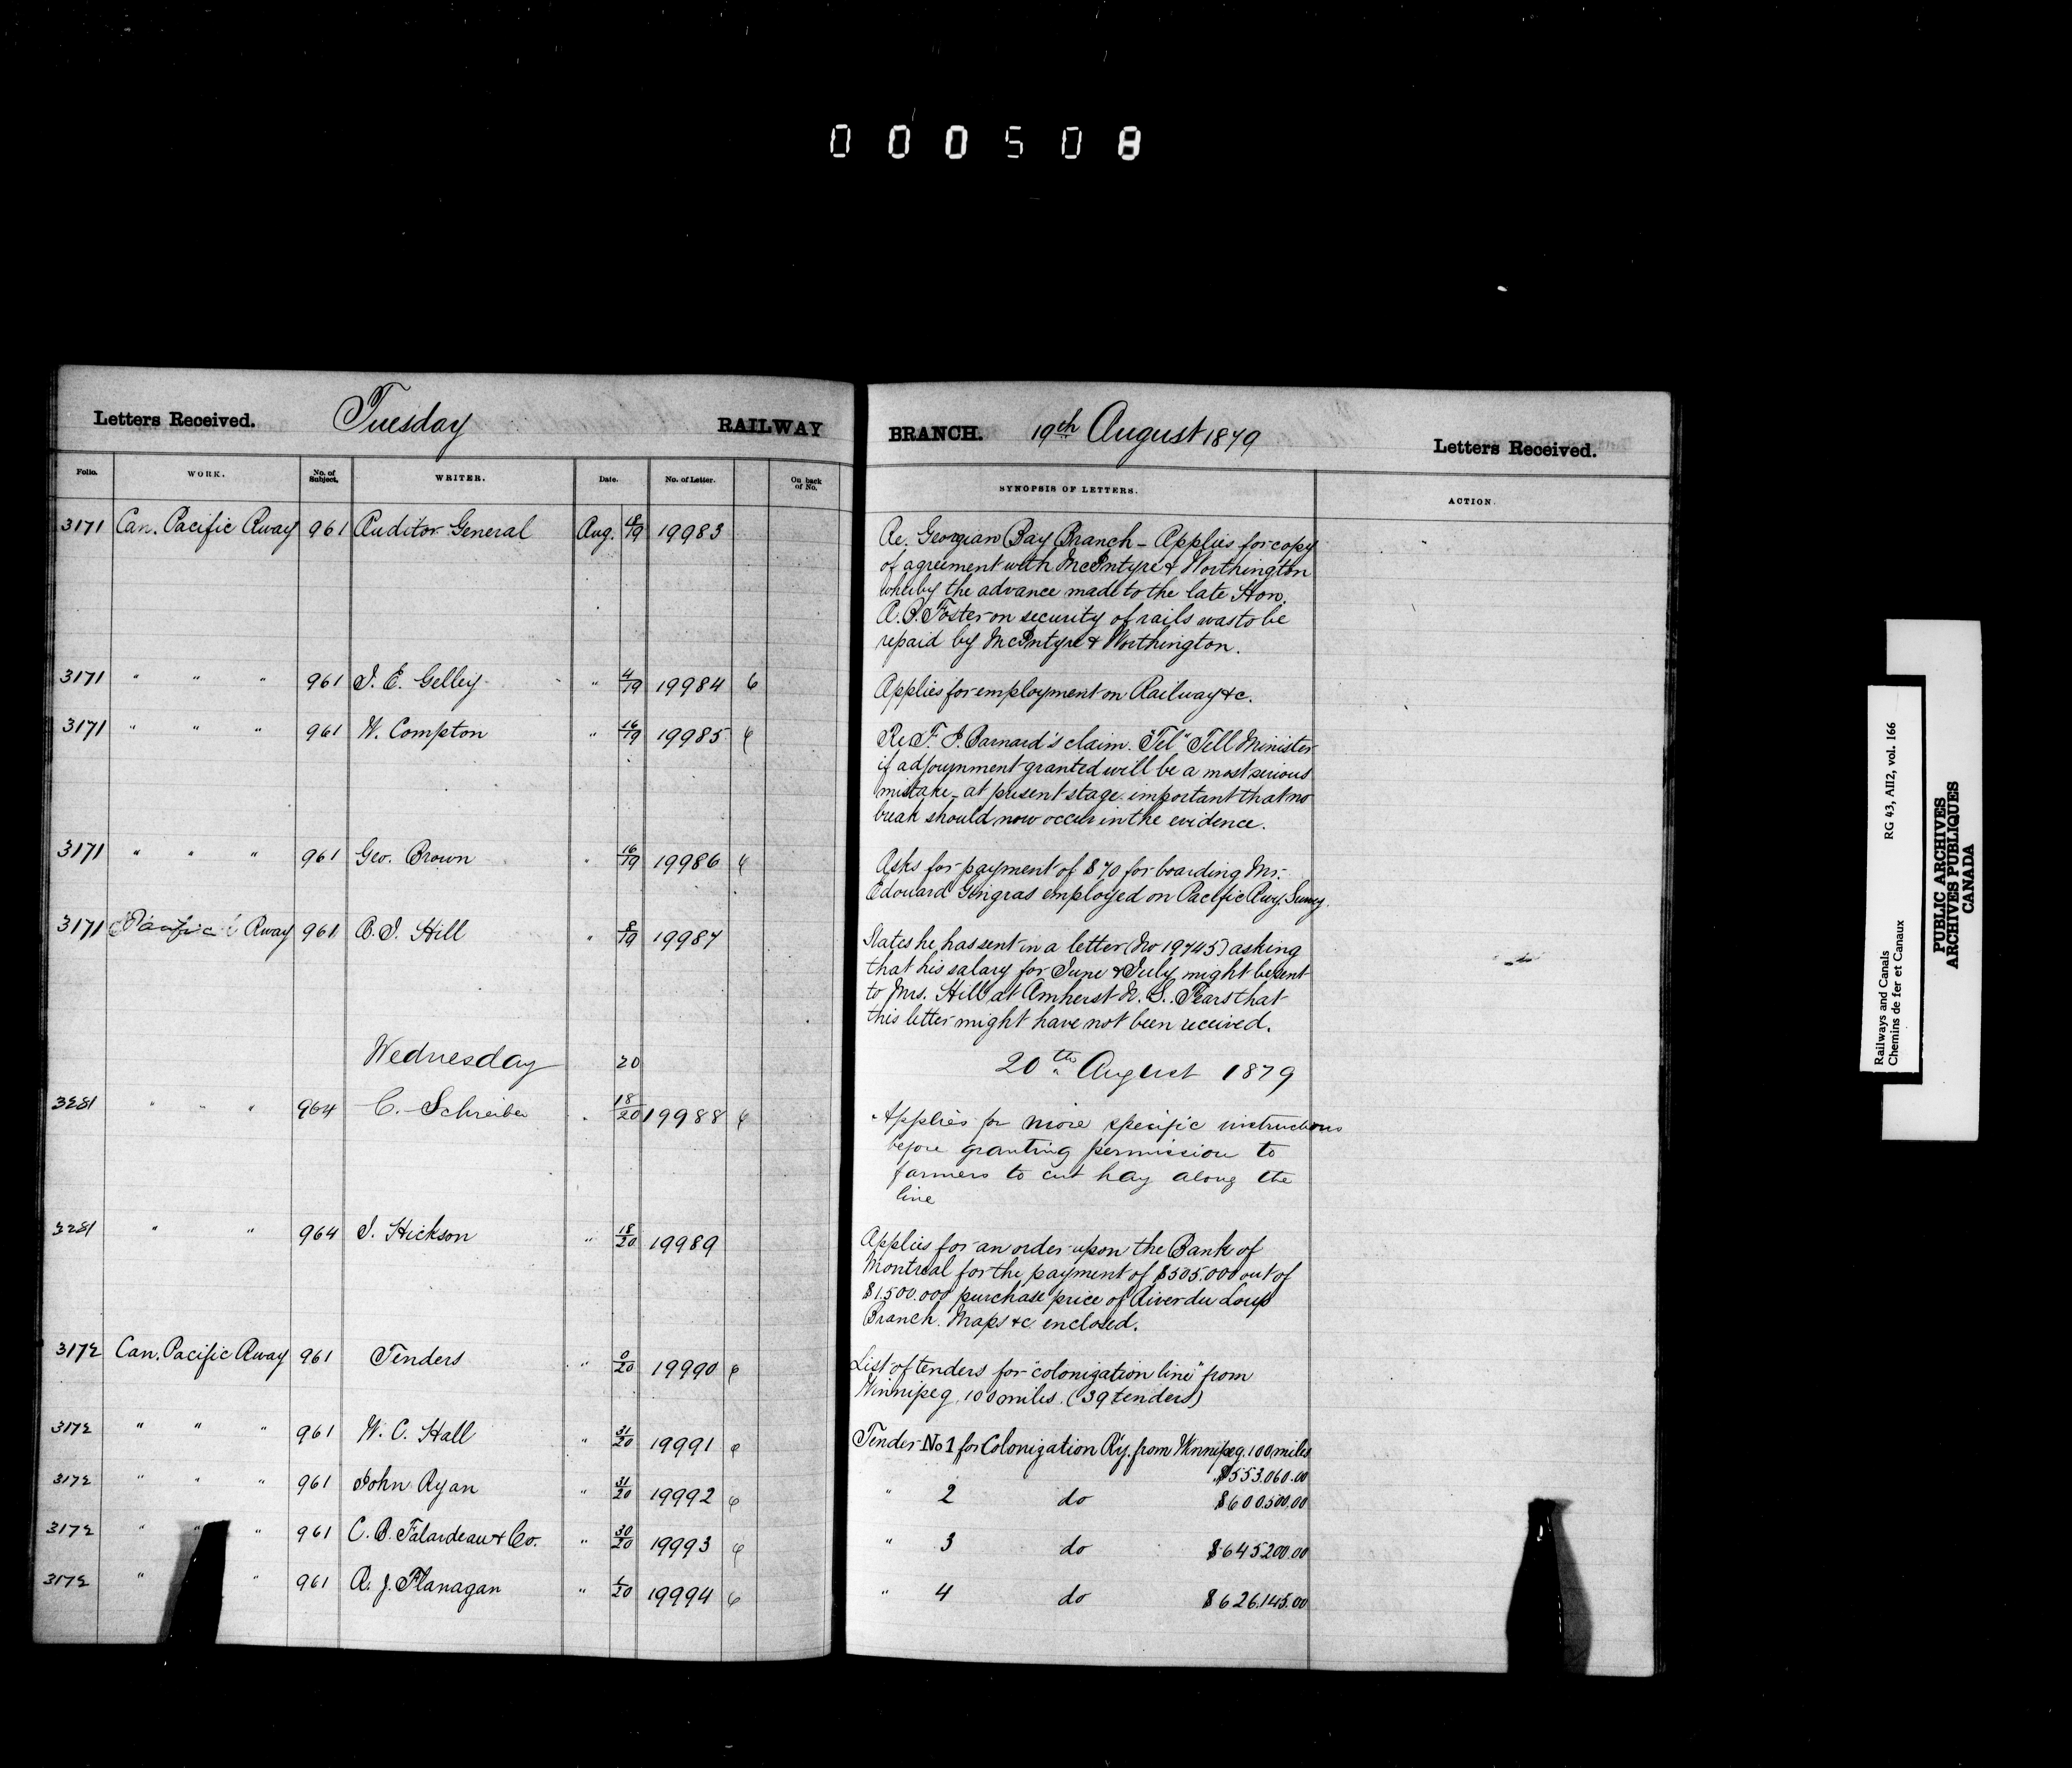 000508
Letters Received. Tuesday RAILWAY BRANCH. 19th August 1879 Letters Received.
Folio. WORK. No. of Subject. WRITER. Date. No. of Letter. On back of No. SYNOPSIS OF LETTERS. ACTION.
3171 Can. Pacific Rway 961 Auditor General Aug. 8/19 19983 Re. Georgian Bay Branch - Applies for copy
of agreement with McIntyre & Worthington
whereby the advance made to the late Hon.
A. B. Foster on security of rails was to be
repaid by McIntyre & Worthington.
3171 " " " 961 J. E. Gelley " 4/19 19984 Applies for employment on Railway &c.
3171 " " " 961 W. Compton " 16/19 19985 Re F. J. Barnard's claim. "Tel" Tell Minister
if adjournment granted will be a most serious
mistake - at present stage important that no
break should now occur in the evidence.
3171 " " " 961 Geo. Brown " 16/19 19986 Asks for payment of $70 for boarding Mr.
Edouard Gingras employed on Pacific Rwy. Survey.
3171 Pacific Rway 961 A. S. Hill " 8/19 19987 States he has sent in a letter (No 19745) asking
that his salary for June & July might be sent
to Mrs. Hill at Amherst N. S. Fears that
this letter might have not been received.
Wednesday 20 20th August 1879
3281 " " " 964 C. Schreiber " 18/20 19988 Applies for more specific instructions
before granting permission to
farmers to cut hay along the
line
3281 " " 964 J. Hickson " 18/20 19989 Applies for an order upon the Bank of
Montreal for the payment of $505.000 out of
$1.500.000 purchase price of River du Loup
Branch. Maps &c. enclosed.
3172 Can. Pacific Rway 961 Tenders " 0/20 19990 List of tenders for "colonization line" from
Winnipeg. 100 miles. (39 tenders)
3172 " " " 961 W. C. Hall " 31/20 19991 Tender No 1 for Colonization Ry. from Winnipeg. 100 miles
$553.060.00
3172 " " " 961 John Ryan " 31/20 19992 " 2 do $600.500.00
3172 " " " 961 C. B. Falardeau & Co. " 30/20 19993 " 3 do $645200.00
3172 " " 961 R. J. Flanagan " 1/20 19994 " 4 do $626.145.00
Railways and Canals RG 43, AII2, vol. 166
Chemins de fer et Canaux
PUBLIC ARCHIVES
ARCHIVES PUBLIQUES
CANADA